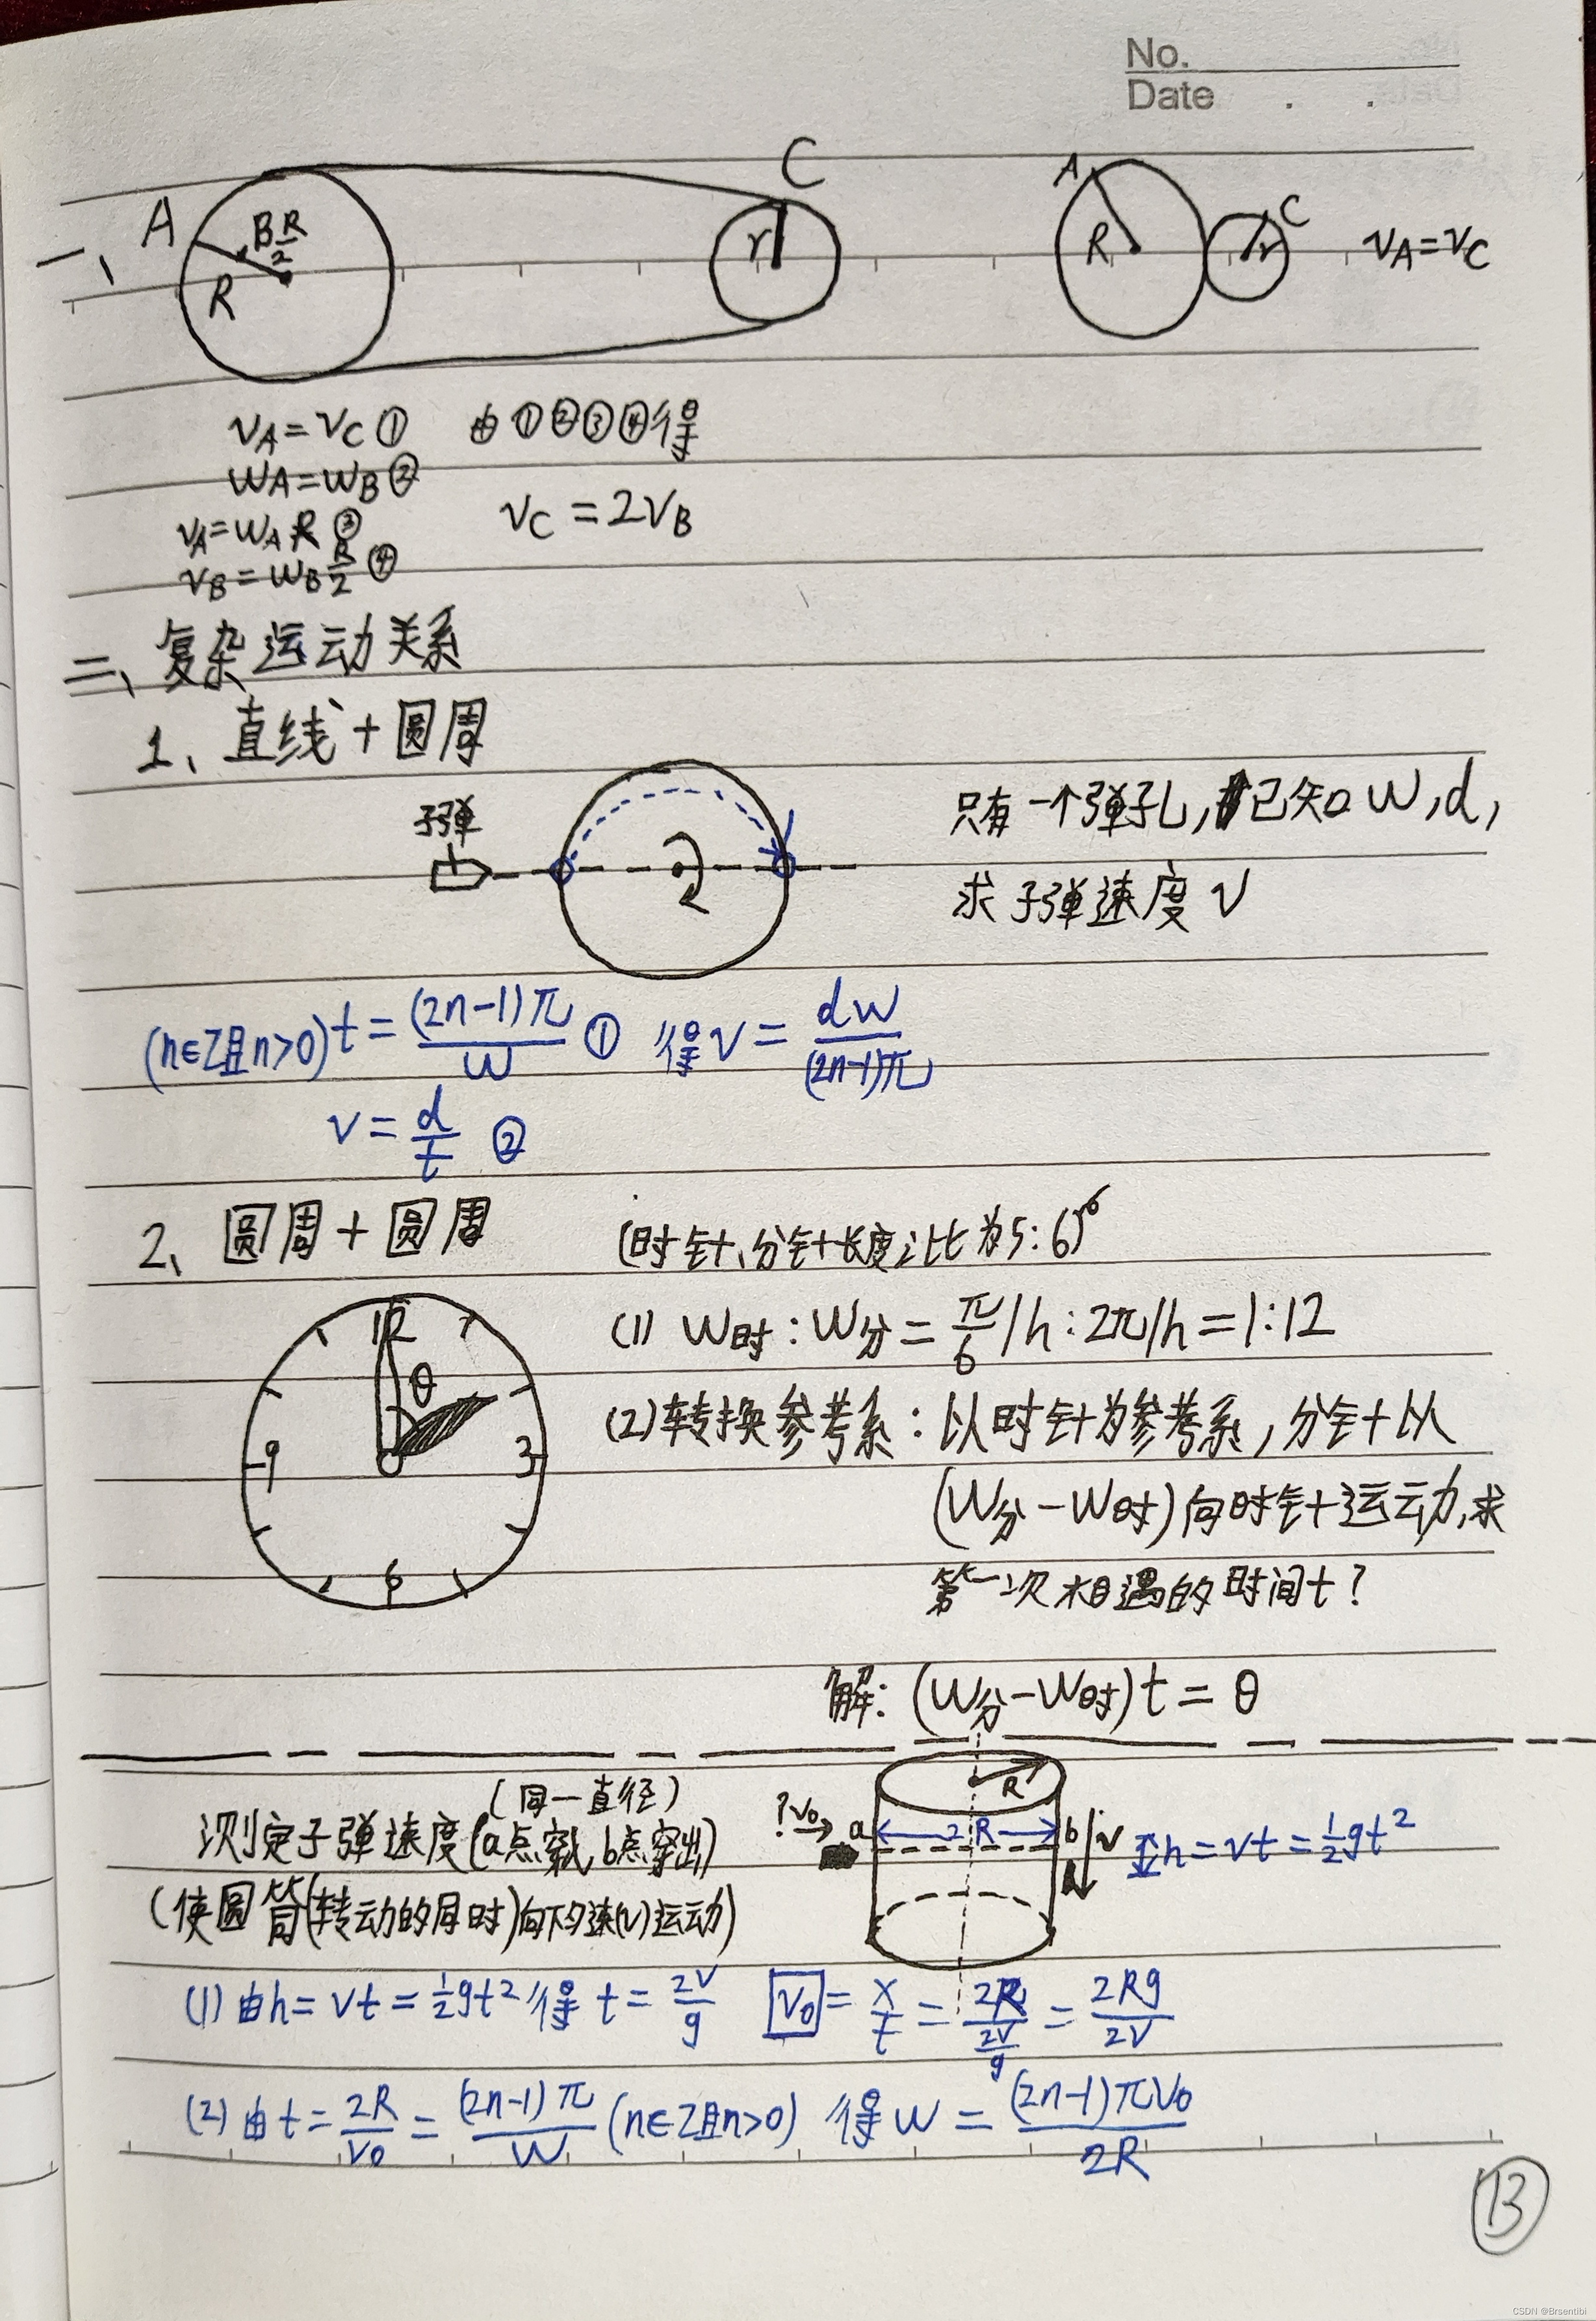 No.
Date . .
一、
A B R/2 R C r A R C r vA=vC
vA=vC ① 由①②③④得
wA=wB ②
vA=wA R ③ vC=2vB
vB=wB R/2 ④
二、复杂运动关系
1、直线+圆周
子弹 只有一个弹孔,已知w,d,
求子弹速度v
(n∈Z且n>0) t=(2n-1)π/w ① 得v=dw/(2n-1)π
v=d/t ②
2、圆周+圆周 (时针、分针长度之比为5:6)
12 θ 3 6 9
(1) w时:w分=π/6/h:2π/h=1:12
(2)转换参考系:以时针为参考系,分针以
(w分-w时)向时针运动,求
第一次相遇的时间t?
解:(w分-w时)t=θ
(同一直径)
测定子弹速度(a点穿 b点穿出)
(使圆筒(转动的同时)向下匀速(v)运动)
R
?v0 a 2R b v h=vt=½gt²
(1)由h=vt=½gt²得 t=2v/g v0=x/t=2R/(2v/g)=2Rg/2v
(2)由t=2R/v0=(2n-1)π/w (n∈Z且n>0) 得w=(2n-1)πv0/2R
13
CSDN @Brsentibi